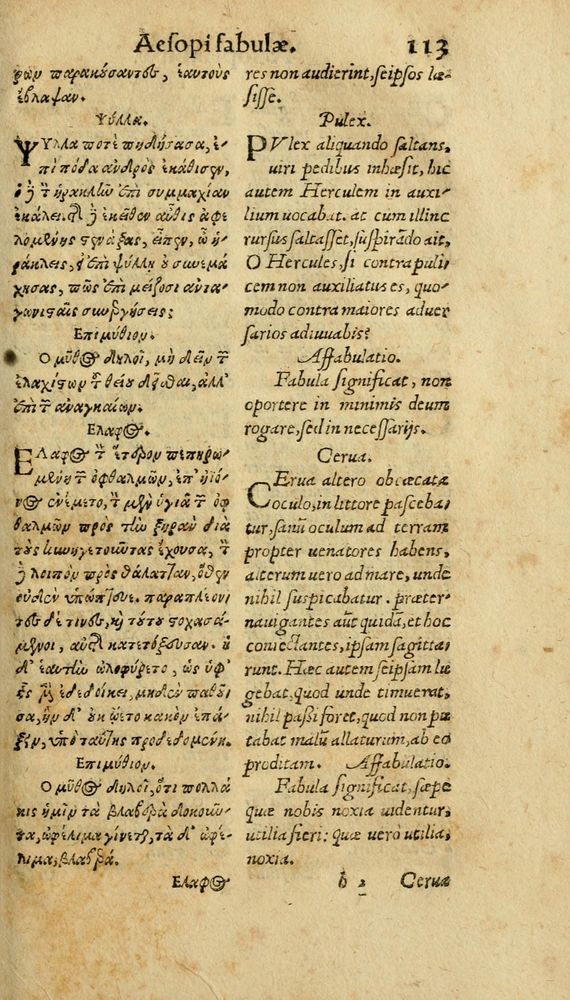 Aesopi fabulæ. 113
ρῶν παρακούσαντες, ἑαυτοὺς
ἔβλαψαν.
Ψύλλα.
ΨΥλλα ποτὲ πηδήσασα, ἐ-
πὶ πόδα ἀνδρὸς ἐκάθισεν,
ὁ δὲ τὸν ἡρακλῆν ἐπὶ συμμαχίαν
ἐκάλει. τῆς δὲ ἐκεῖθεν αὖθις ἀφε
λομένης στενάξας, εἶπεν, ὦ ἡ-
ράκλεις, εἰ ἐπὶ ψύλλῃ οὐ συνεμά
χησας, πῶς ἐπὶ μείζοσι ἀντα-
γωνισταῖς συνεργήσεις;
Ἐπιμύθιον.
Ὁ μῦθος δηλοῖ, μὴ δεῖν τῶν
ἐλαχίστων τοῦ θείου δεῖσθαι, ἀλλ'
ἐπὶ τῶν ἀναγκαίων.
Ἔλαφος.
ΕΛαφος τὸν ἕτερον πεπηρω-
μένη τῶν ὀφθαλμῶν, ἐπ' ἠϊό-
νος ἐνέμετο, τὸν μὲν ὑγιᾶ τῶν ὀφ
θαλμῶν πρὸς τὴν ξηρὰν διὰ
τοὺς κυνηγετοῦντας ἔχουσα, τὸν
δὲ λοιπὸν πρὸς θάλατταν, ὅθεν
οὐδὲν ὑπώπτευε. παραπλέον
τες δέ τινες, καὶ τοῦτο στοχασά-
μενοι, αὐτὴν κατετόξευσαν. ἡ
δ' ἑαυτὴν ὠλοφύρετο, ὡς ὑφ'
ἧς μὲν ἐδεδοίκει, μηδὲν παθοῦ
σα, ἣν δ' οὐκ ᾤετο κακὸν ἐπά-
ξειν, ὑπὸ ταύτης προδεδομένη.
Ἐπιμύθιον.
Ὁ μῦθος δηλοῖ, ὅτι πολλά
κις ἡμῖν τὰ βλαβερὰ δοκοῦν-
τα, ὠφέλιμα γίνεται, τὰ δ' ὠφέ-
λιμα, βλαβερά.
Ἔλαφος
res non audierint, seipsos læ-
sisse.
Pulex.
PVlex aliquando saltans,
uiri pedibus inhæsit, hic
autem Herculem in auxi-
lium uocabat. ac cum illinc
rursus saltasset, suspirādo ait,
O Hercules, si contra puli
cem non auxiliatus es, quo-
modo contra maiores aduer
sarios adiuuabis?
Affabulatio.
Fabula significat, non
oportere in minimis deum
rogare, sed in necessarijs.
Cerua.
CErua altero obcæcata
oculo, in littore pasceba-
tur, sanū oculum ad terram
propter uenatores habens,
alterum uero ad mare, unde
nihil suspicabatur. præter-
nauigantes aūt quidā, et hoc
coniectantes, ipsam sagitta-
runt. Hæc autem seipsam lu
gebat, quod unde timuerat,
nihil passi foret, quod non pu
tabat malū allaturum, ab eo
proditam. Affabulatio.
Fabula significat, sæpe
quæ nobis noxia uidentur,
utilia fieri: quæ uero utilia,
noxia.
h 2 Ceruæ